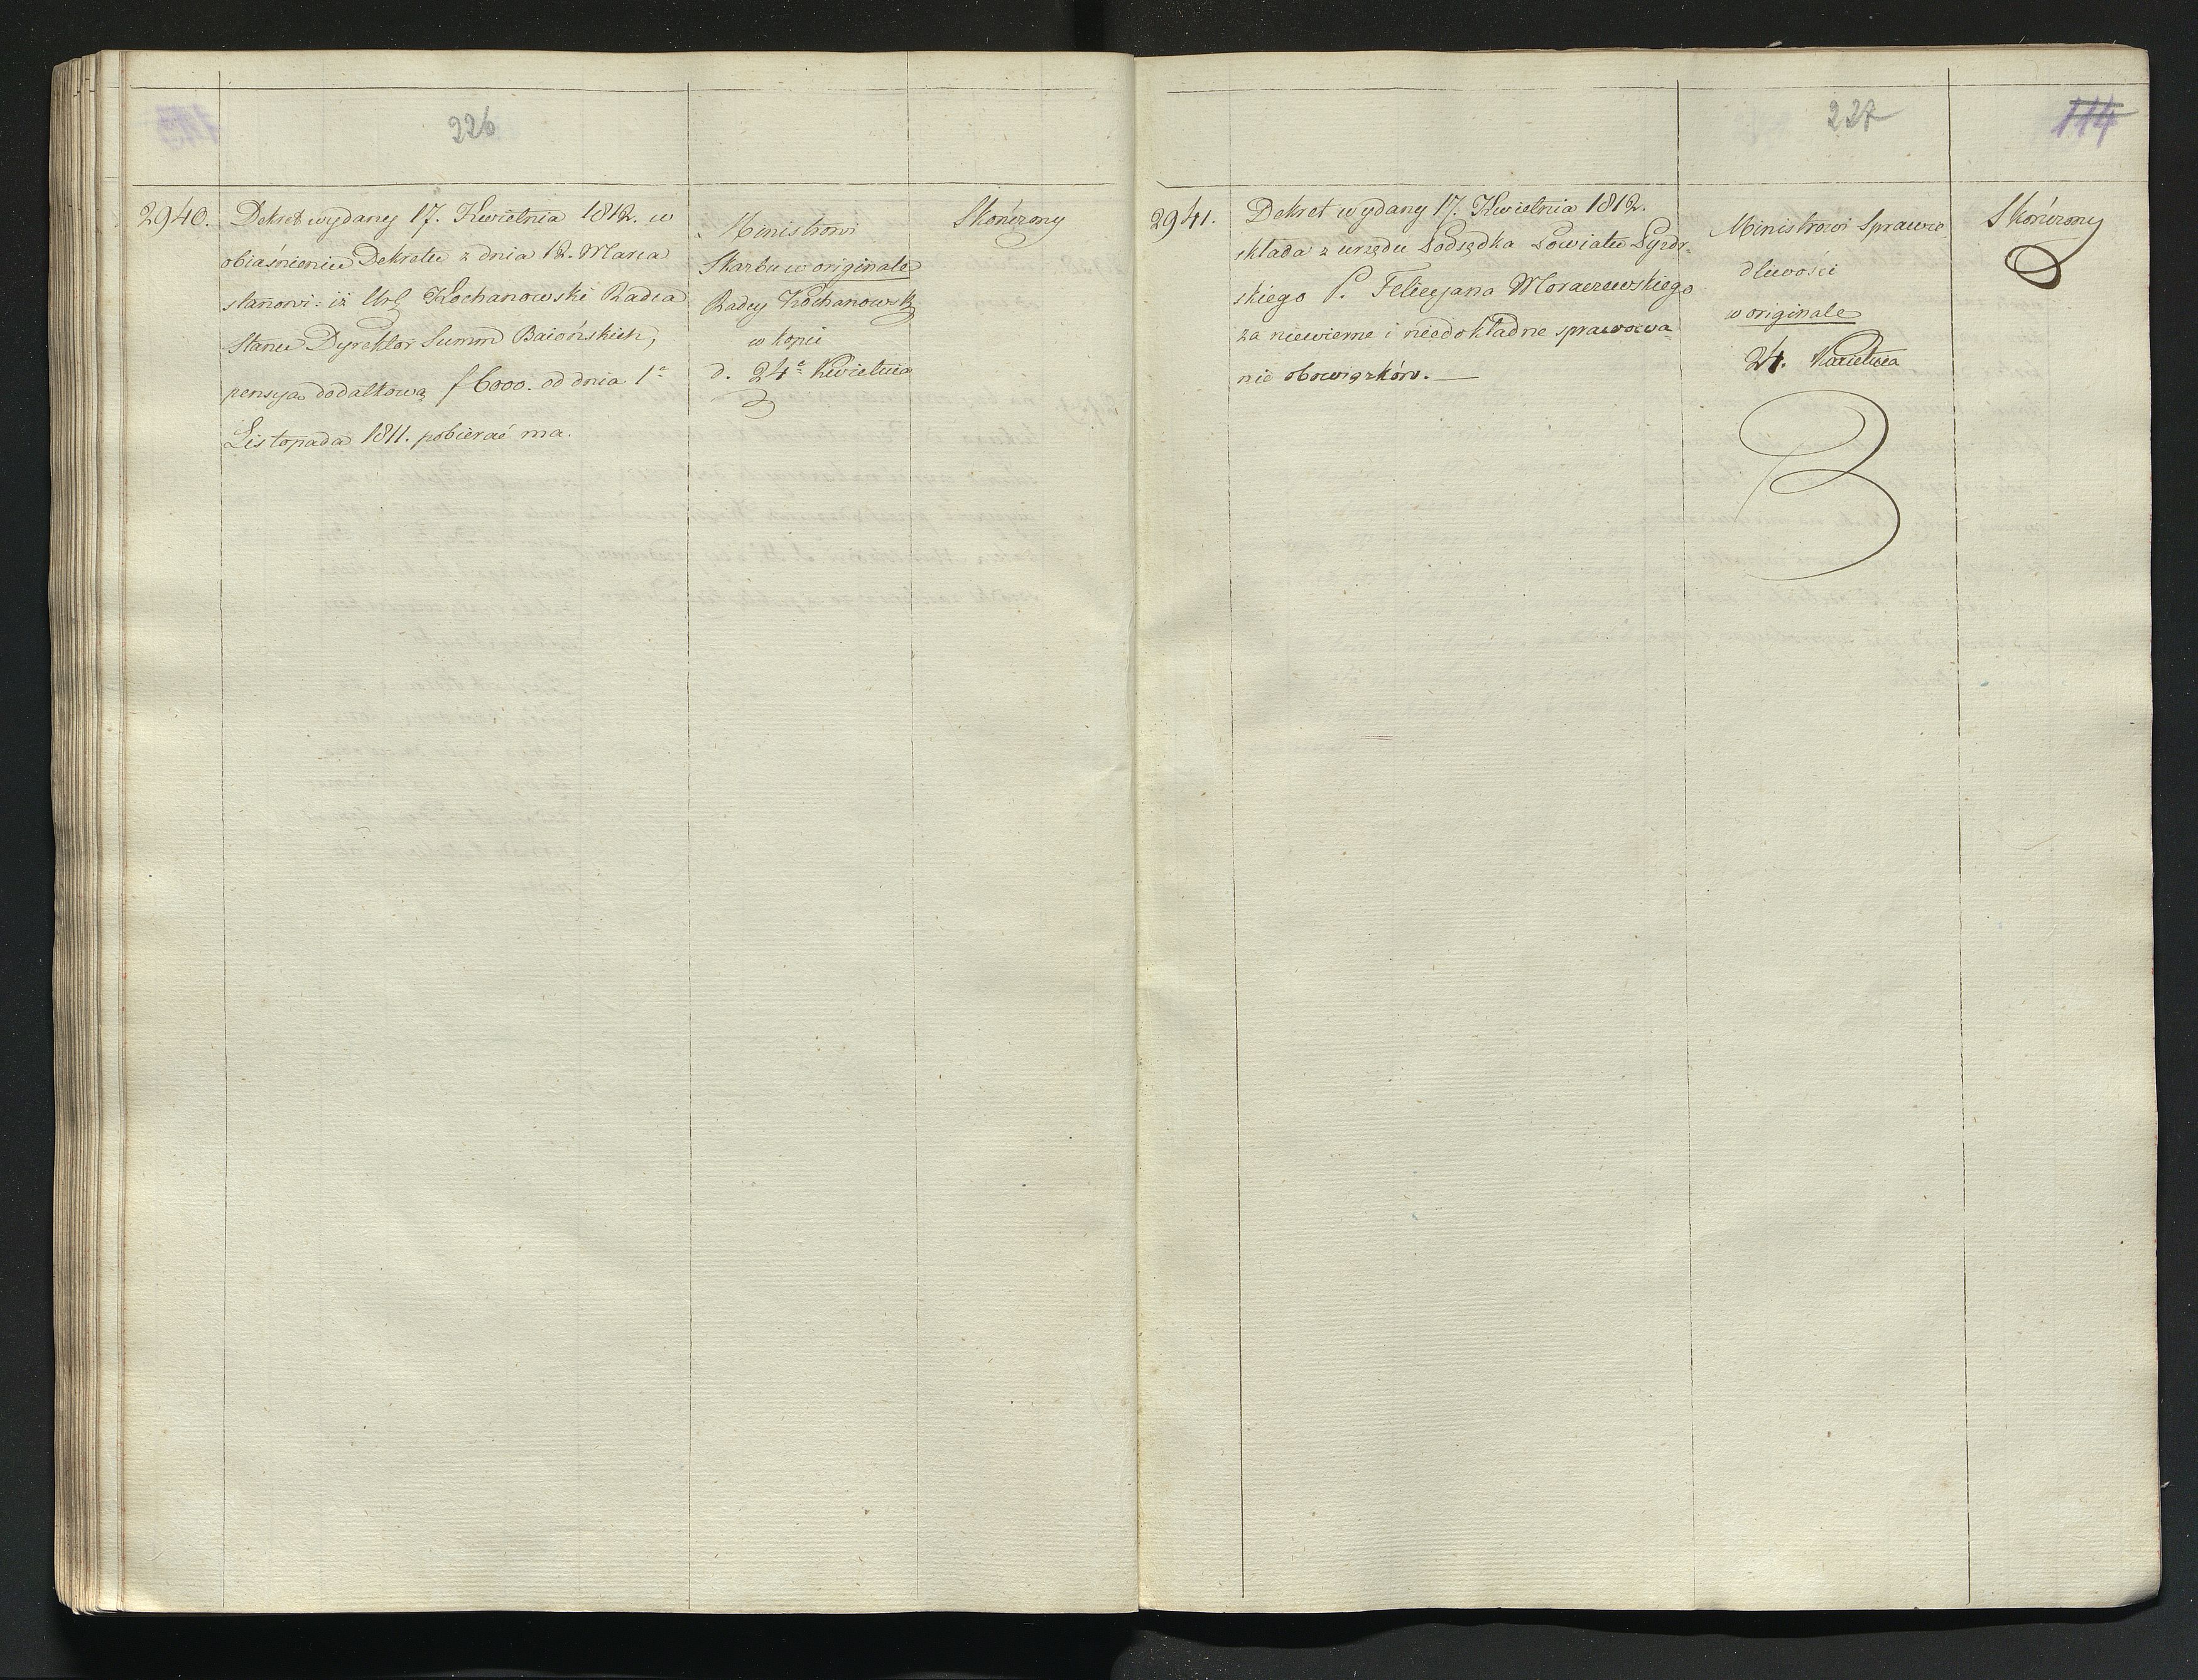 226
2940.
Dekret wydany 17. Kwietnia 1812. w
obiaśnieniu Dekretu z dnia 12. Marca
stanowi: iż Ur. Kochanowski Radca
Stanu Dyrektor Summ Baiońskich,
pensya dodatkową f 6000. od dnia 1º
Listopada 1811. pobierać ma.
Ministrowi
Skarbu w originale
Radcy Kochanowsk
w kopii
d. 24º Kwietnia
Skończony
227
114
2941.
Dekret wydany 17. Kwietnia 1812.
składa z urzędu Podsędka Powiatu Pyzdr-
skiego P. Felicyana Moraczewskiego
za niewierne i niedokładne sprawowa-
nie obowiązków. —
Ministrowi Sprawie
dliwości
w originale
24. Kwietnia
Skończony